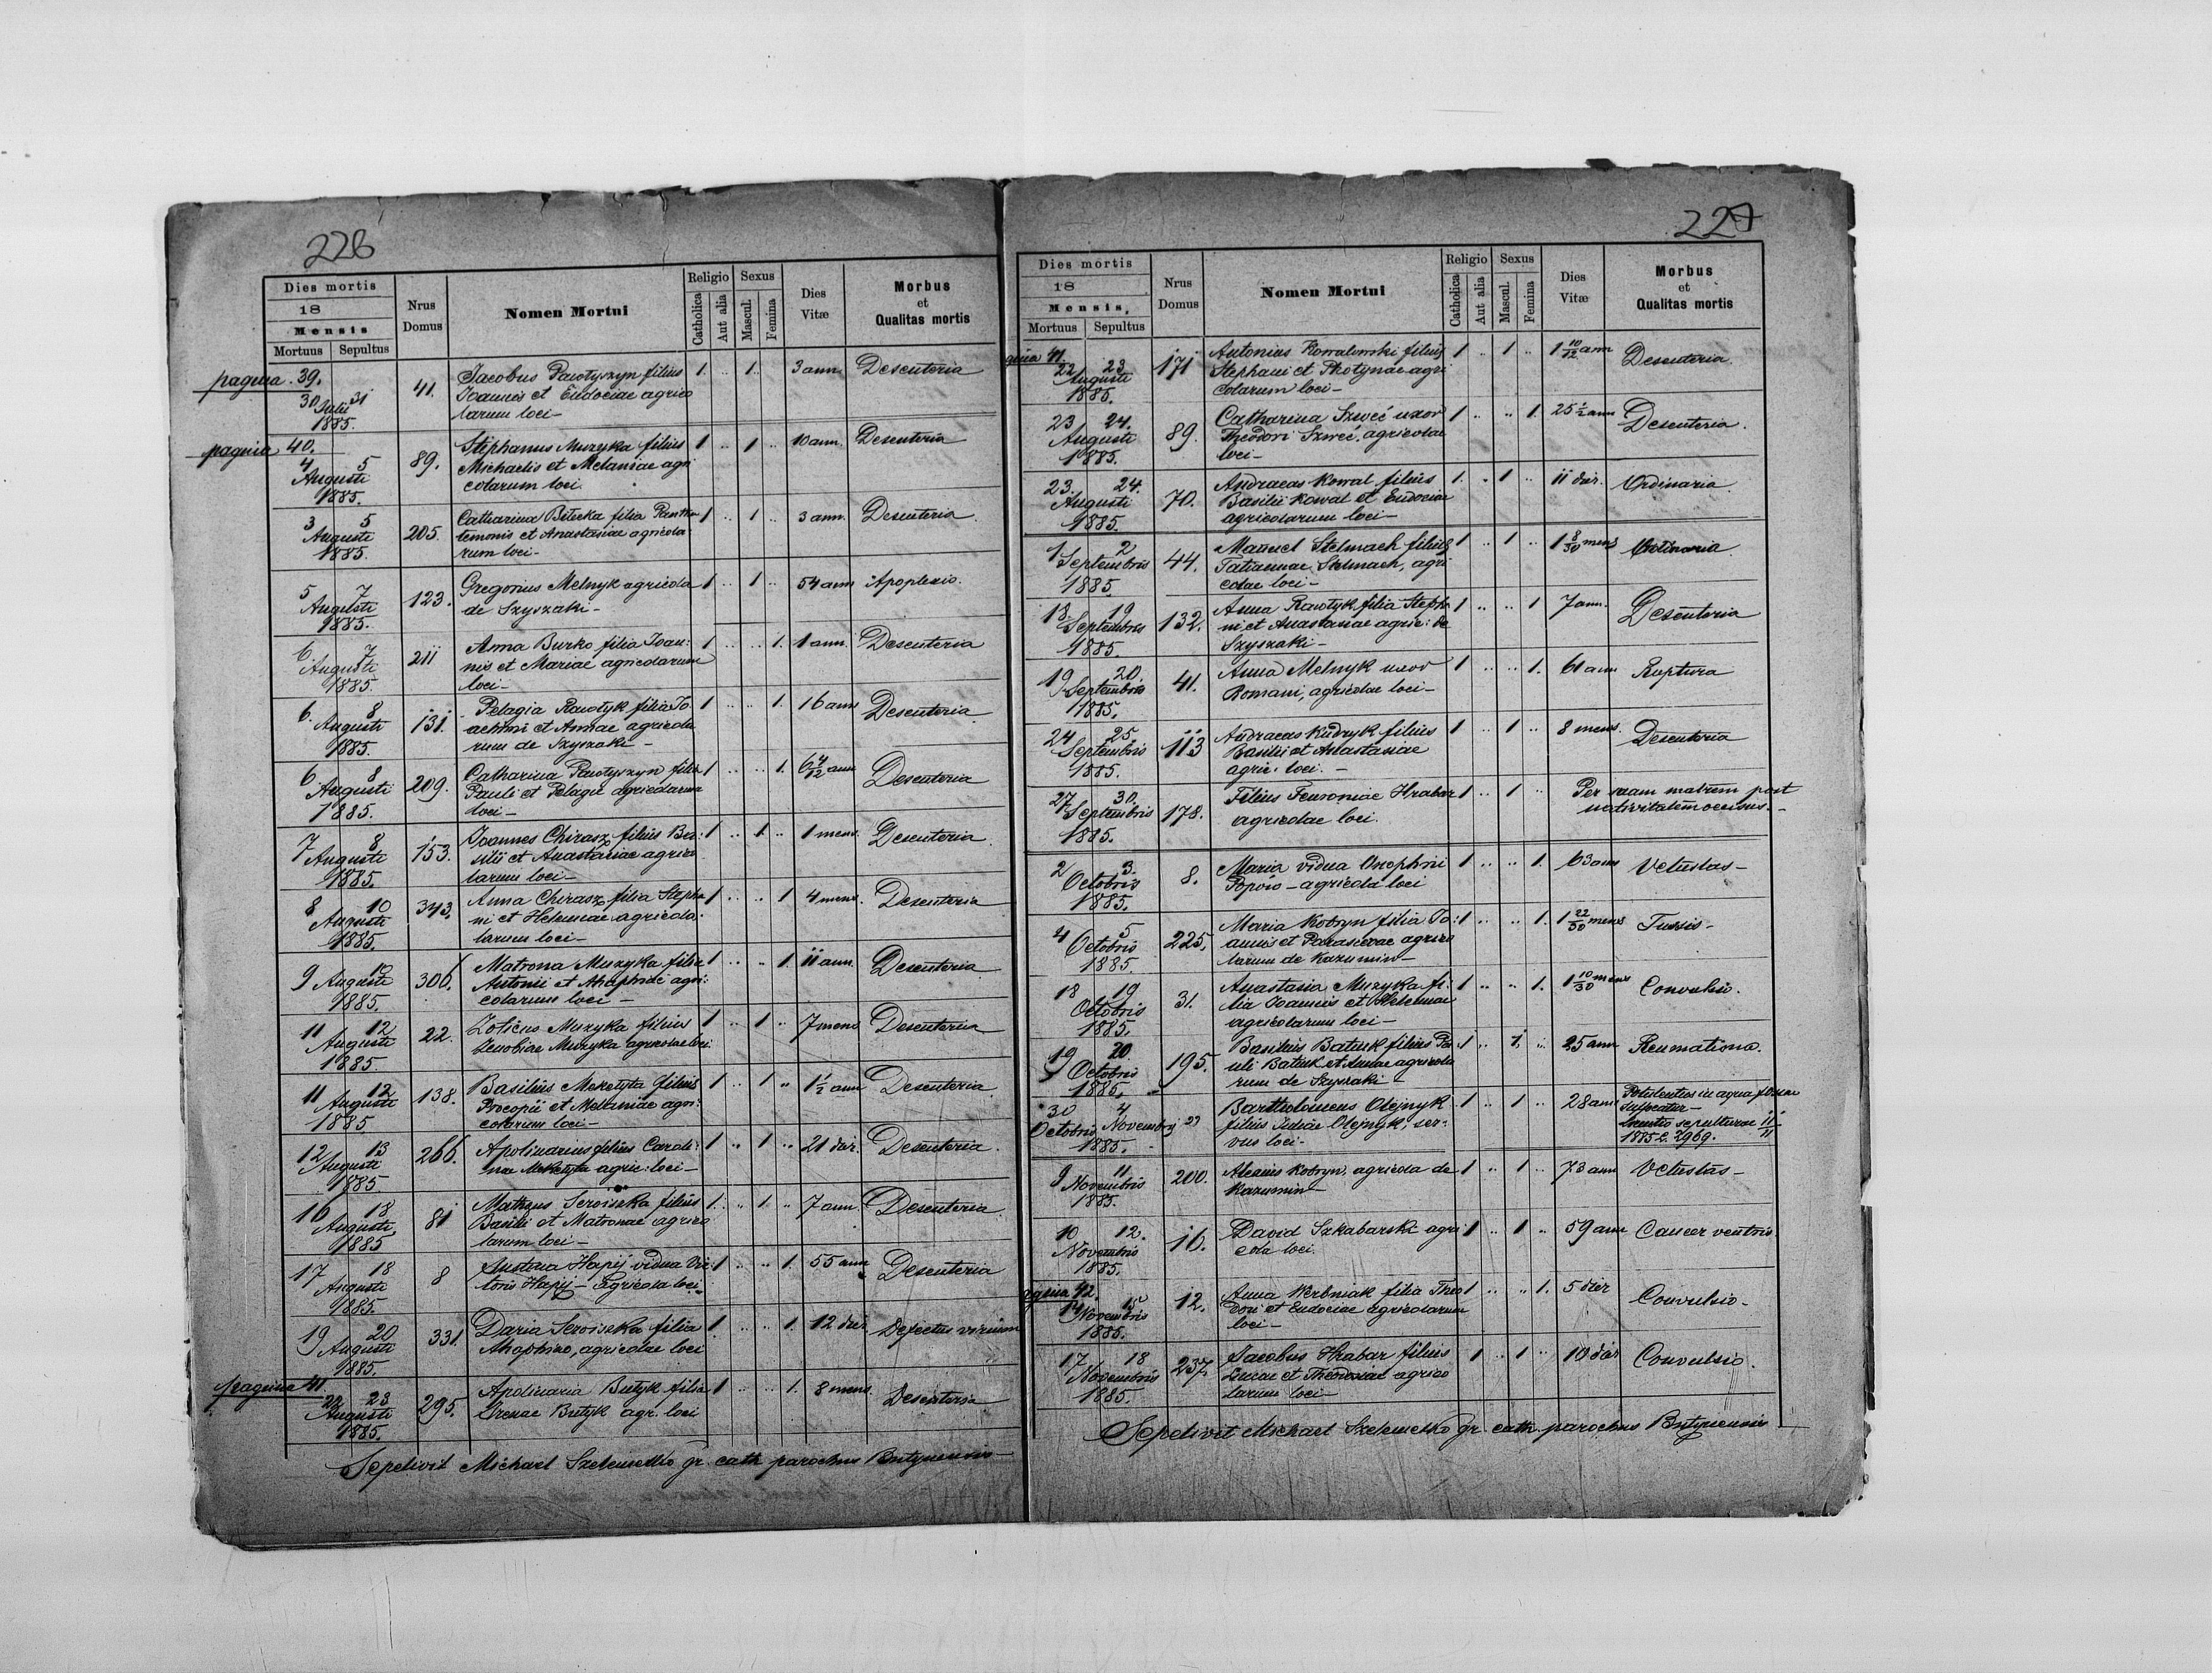 226
Dies mortis
18
Mensis
Mortuus Sepultus
Nrus Domus
Nomen Mortui
Religio
Catholica
Aut alia
Sexus
Mascul.
Femina
Dies Vitæ
Morbus
et
Qualitas mortis
pagina 39.
30 31
Julii
1885.
41.
Jacobus Pawtyszyn filius
Joannis et Eudociae agrico
larum loci —
1 .. 1 ..
3 ann.
Desenteria
pagina 40.
4 5
Augusti
1885.
89.
Stephanus Muzyka filius
Michaelis et Melaniae agri
colarum loci.
1 .. 1 ..
10 ann.
Desenteria
3 5
Augusti
1885.
205.
Catharina Bilecka filia Pantha
lemonis et Anastasiae agricola
rum loci —
1 .. 1 ..
3 ann.
Desenteria
5 7
Augusti
1885.
123.
Gregorius Melnyk agricola
de Szyszaki —
1 .. 1 ..
54 ann
Apoplexio.
6 7
Augusti
1885.
211
Anna Burko filia Joan:
nis et Mariae agricolarum
loci —
1 .. .. 1.
1 ann.
Desenteria
6. 8
Augusti
1885.
131.
Pelagia Rawtyk filia Jo
achimi et Annae agricola
rum de Szyszaki —
1 .. .. 1.
16 ann
Desenteria
6 8
Augusti
1885.
209.
Catharina Pawtyszyn filia
Pauli et Pelagii agricolarum
loci —
1 .. .. 1.
6 4/12 ann
Desenteria
7 8
Augusti
1885.
153.
Joannes Chirasz filius Ba:
silii et Anastasiae agrico
larum loci —
1 .. 1 ..
1 mens.
Desenteria
8 10
Augusti
1885.
343.
Anna Chirasz filia Stepha
ni et Helenae agricola:
larum loci —
1 .. .. 1
4 mens.
Desenteria
9 10
Augusti
1885.
306.
Matrona Muzyka filia
Antonii et Ahaphiae agri:
colarum loci —
1 .. .. 1.
11 ann.
Desenteria
11 12
Augusti
1885
22.
Zoticus Muzyka filius
Zenobiae Muzyka agricolae loci.
1 .. 1 ..
7 mens
Desenteria
11 12
Augusti
1885
138.
Basilius Meketyta filius
Procopii et Melaniae agri:
colarum loci —
1 .. 1 ..
1 1/2 ann
Desenteria
12 13
Augusti
1885
266.
Apolinarius filius Caroli:
na Meketyta agric: loci —
1 .. 1 ..
21 dier.
Desenteria.
16 18
Augusti
1885
81
Matheus filius
Basilii et Matronae agrico
larum loci —
1. .. 1 ..
7 ann.
Desenteria
17 18
Augusti
1885.
8
Justina Hapij vidua Vic
toris Hapij — Agricola loci.
1 .. .. 1.
55 ann
Desenteria
19 20
Augusti
1885.
331.
Daria filia
agricolae loci
1 .. .. 1.
12 dier
Defectus virium
pagina 41
22 23
Augusti
1885.
295.
Apolinaria Butyk filia
Irenae Butyk agr. loci
1 .. .. 1.
8 mens
Desenteria
Sepelivit Michael gr. cath parochus Butynensis
227
Dies mortis
18
Mensis
Mortuus Sepultus
Nrus Domus
Nomen Mortui
Religio
Catholica
Aut alia
Sexus
Mascul.
Femina
Dies Vitæ
Morbus
et
Qualitas mortis
gina 41.
22 23
Augusti
1885.
171
Antonius Kowalowski filius
Stephani et Photynae agri
colarum loci —
1 .. 1 ..
1 10/12 ann
Desenteria
23 24.
Augusti
1885.
89.
Catharina Szweć uxor
Theodori Szweć, agricolae
loci —
1 .. .. 1.
25 1/2 ann
Desenteria.
23. 24.
Augusti
1885.
70.
Andraeas Kowal filius
Basilii Kowal et Eudociae
agricolarum loci —
1. .. 1 ..
11 dier.
Ordinaria
1 2
Septembris
1885
44.
Manuel Stelmach filius
Tatianae Stelmach, agri
colae loci —
1 .. 1 ..
1 8/30 mens
Ordinaria
18 19
Septembris
1885.
132.
Anna Rawtyk filia Stepha
ni et Anastasiae agric: de
Szyszaki —
1 .. .. 1
7 ann.
Desenteria
19 20.
Septembris
1885.
41.
Anna Melnyk uxor
Romani, agricolae loci —
1 .. .. 1.
61 ann
Ruptura
24 25.
Septembris
1885.
113
Andraeas Kudryk filius
Basilii et Anastasiae
agric. loci. —
1 .. 1 ..
8 mens.
Desenteria
27 30.
Septembris
1885.
178.
Filius Feuroniae Hrabar
agricolae loci.
1 .. 1 ..
Per suam matrem post
nativitatem occisus. —
2 3.
Octobris
1885.
8.
Maria vidua Onophrii
— agricola loci
1 .. .. 1.
63 ann
Vetustas —
4 5
Octobris
1885.
225.
Maria Kobryn filia Jo:
annis et Parascevae agrico
larum de Kazumin —
1 .. .. 1.
1 22/30 mens
Tussis —
18 19
Octobris
1885.
31.
Anastasia Muzyka fi:
lia Joannis et Helenae
agricolarum loci —
1 .. .. 1.
1 10/30 mens
Convulsio.
19 20
Octobris
1885.
195.
Basilius Batiuk filius Pa
uli Batiuk et Annae agricola
rum de Szyszaki —
1 .. 1. ..
25 ann
Reumatisna.
30 4
Octobris Novembris
1885.
Bartholomeus Olejnyk
filius Juliae Olejnyk, ser-
vus loci —
1 .. 1 ..
28 ann
in aqua
suffocatur —
sepulturae 11/11
1885 L. 2969.
9 11
Novembris
1885.
200.
Alexius Kobryn, agricola de
Kazumin —
1 .. 1 ..
73 ann
Vetustas —
10 12.
Novembris
1885.
16.
David Szkabarski agri
cola loci.
1 .. 1 ..
59 ann
Cancer ventris.
gina 42.
14 15
Novembris
1885.
12.
Anna Werbniak filia Theo
dori et Eudociae agricolarum
loci —
1 .. .. 1.
5 dier
Convulsio —
17 18
Novembris
1885.
237.
Jacobus Hrabar filius
Lucae et Theodosiae agrico
larum loci —
1 .. 1 ..
10 dier
Convulsio.
Sepelivit Michael gr. cath parochus Butynensis